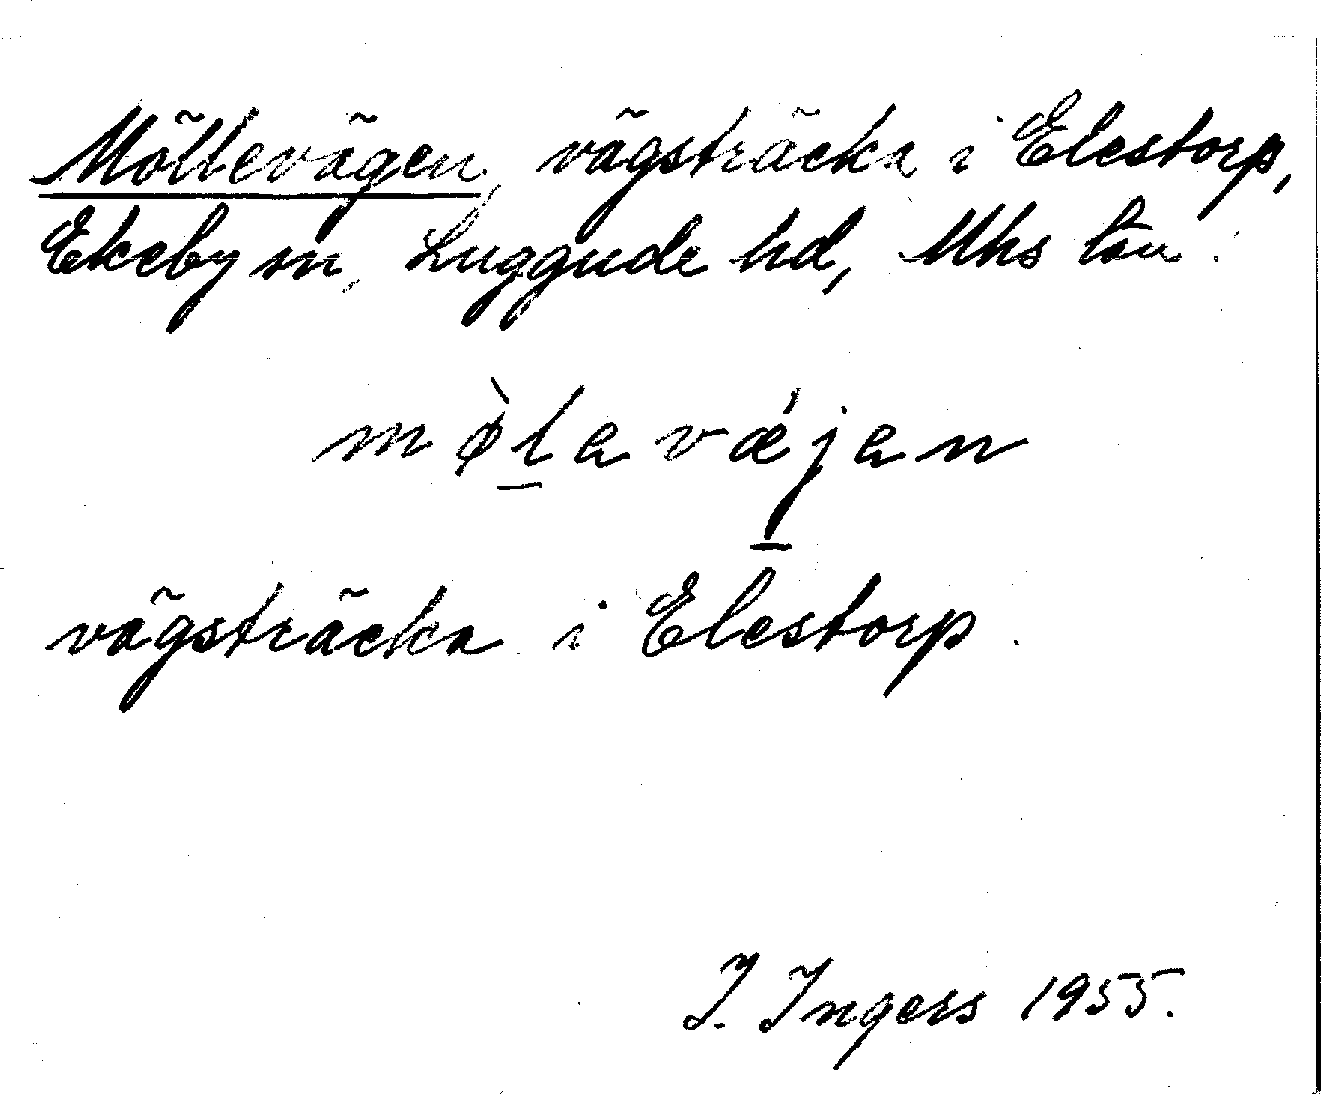 Möllevägen, vägsträcka i Elestorp,
Ekeby sn, Luggude hd, Mhs län.
mø̀l̲avǽj̲an
vägsträcka i Elestorp.
I. Ingers 1955.